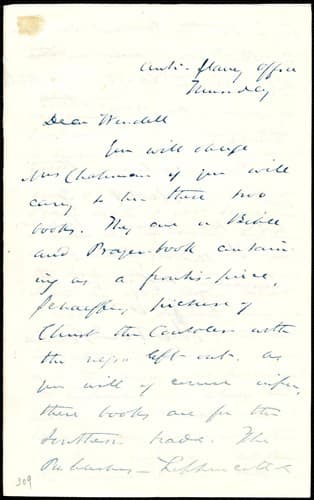 Anti-Slavery Office
Thursday
Dear Wendell
You will oblige
Mrs Chapman if you will
carry to her these two
books. They are a Bible
and Prayer-book contain-
ing as a frontis-piece,
Scheffer's picture of
Christ the Consoler with
the negro left out. As
you will of course infer,
these books are for the
Southern trade. The
Publishers – Lippincott &
309